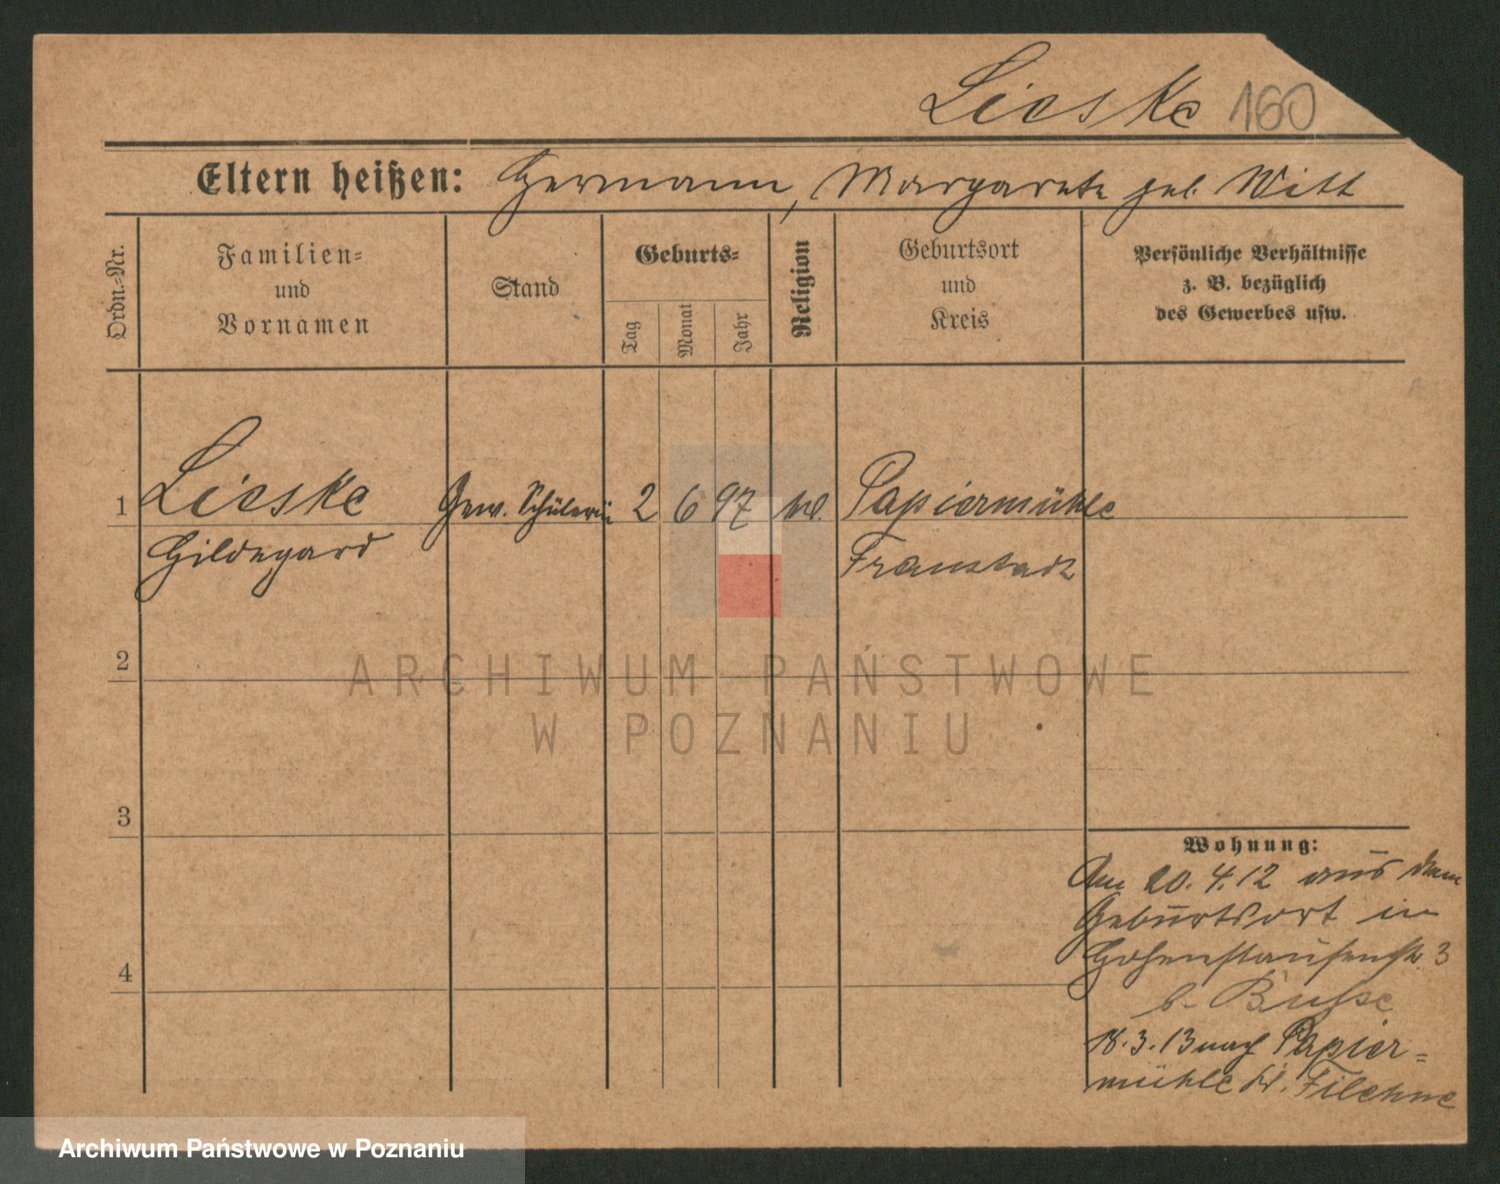 Lieske 160
Eltern heißen: Hermann, Margarete geb. Witt
Ordn.-Nr.
Familien-
und
Vornamen
Stand
Geburts-
Tag
Monat
Jahr
Religion
Geburtsort
und
Kreis
Persönliche Verhältnisse
z. B. bezüglich
des Gewerbes usw.
1 Lieske Gew. Schülerin 2 6 97 Papiermühle
Hildegard Fraustadt
2
ARCHIWUM PAŃSTWOWE
W POZNANIU
3
Wohnung:
Am 20.4.12 aus dem
Geburtsort in
4 Hohenstaufenstr. 3
b. Busse
18.3.13 nach Papier=
mühle Kr. Filehne
Archiwum Państwowe w Poznaniu